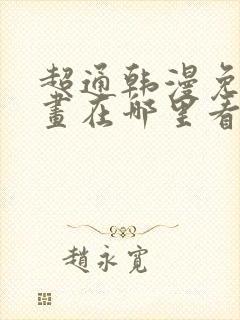 超通韩漫免
畫在哪里看
趙永寬